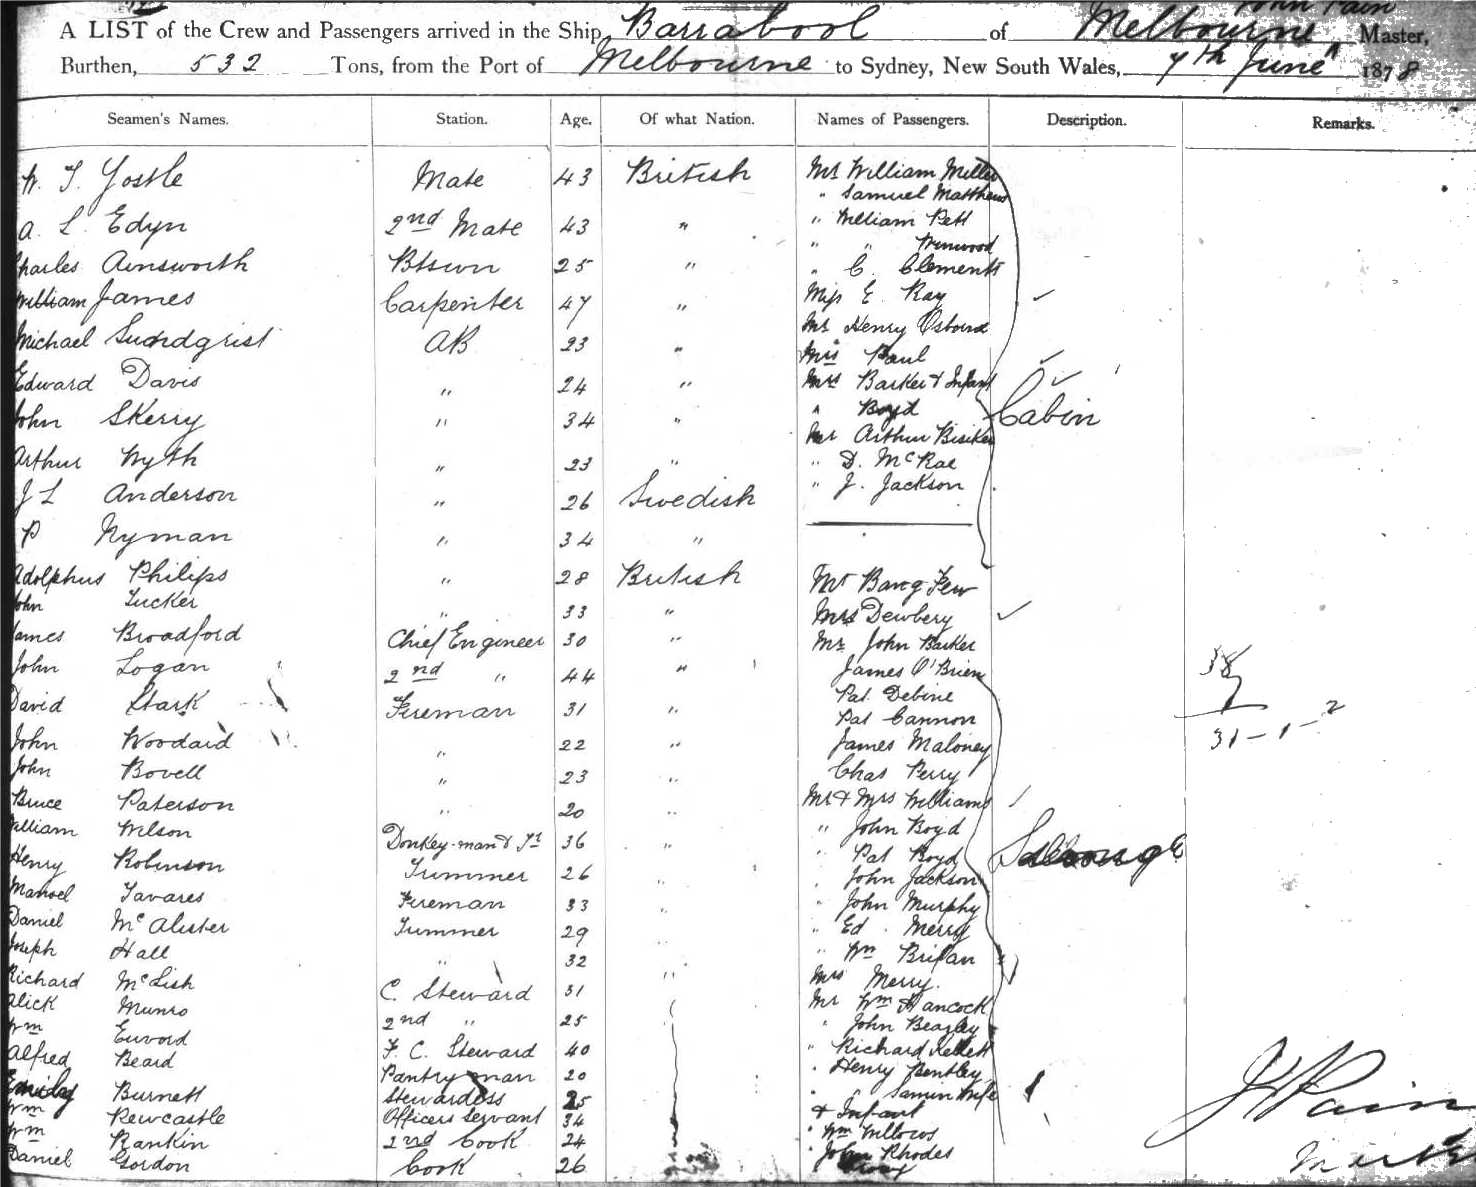 John Pain
A LIST of the Crew and Passengers arrived in the Ship Barrabool of Melbourne Master,
Burthen, 532 Tons, from the Port of Melbourne to Sydney, New South Wales, 7th June 1878
Seamen's Names. Station. Age. Of what Nation. Names of Passengers. Description. Remarks.
W. T. Yostle Mate 43 British
A. L. Edyn 2nd Mate 43 "
Charles Ainsworth Btswn 25 "
William James Carpenter 47 "
Michael Sundqrist AB 23 "
Edward Davis " 24 "
John Skerry " 34 "
Arthur Wyth " 23 "
J L Anderson " 26 Swedish
P Nyman " 34 "
Adolphus Philips " 28 British
John Tucker " 33 "
James Broadford Chief Engineer 30 "
John Logan 2nd " 44 "
David Stark Fireman 31 "
John Woodard " 22 "
John Bovell " 23 "
Bruce Paterson " 20 "
William Wilson Donkey-man & 36 "
Henry Robinson Trimmer 26 "
Manoel Tavares Fireman 33 "
Daniel McAlister Trimmer 29 "
Joseph Hall " 32
Richard McLish C. Steward 31 "
Alick Munro 2nd " 25
Wm 40
Alfred Beard F. C. Steward
Pantryman 20
Emily Burnett Stewardess 25
Wm Newcastle Officers Servant 34
Wm Rankin 2nd Cook 24
Daniel Gordon Cook 26
Mr William Miller
" Samuel Matthews
" William Pett
" " Winwood
" C. Clements
Miss E. Ray
Mr Henry Osbord
Mrs Paul
Mrs Barker & Infant
" Boyd
Mr Arthur Bisiker
" D. McRae
" J. Jackson
Cabin
Mr Bang Few
Mrs Dewbery
Mr John Barker
James O'Brien
Pat Debine
Pat Cannon
James Maloney
Chas Perry
Mr & Mrs Williams
" John Boyd
" Pat Boyd
" John Jackson
" John Murphy
" Ed. Merry
" Wm
Mrs Merry.
Mr Wm Hancock
" John Beazley
" Richard Kellett
" Henry Bentley
" Samin Wife
& Infant
" Wm Willows
" John Rhodes
38
7
31 - 1 - 2
J Pain
Master